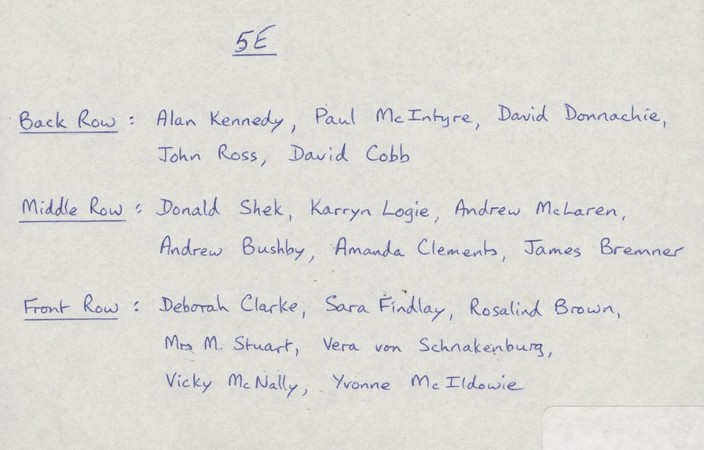 5E
Back Row : Alan Kennedy, Paul McIntyre, David Donnachie,
John Ross, David Cobb
Middle Row : Donald Shek, Karryn Logie, Andrew McLaren,
Andrew Bushby, Amanda Clements, James Bremner
Front Row : Deborah Clarke, Sara Findlay, Rosalind Brown,
Mrs M. Stuart, Vera von Schnakenburg,
Vicky McNally, Yvonne McIldowie